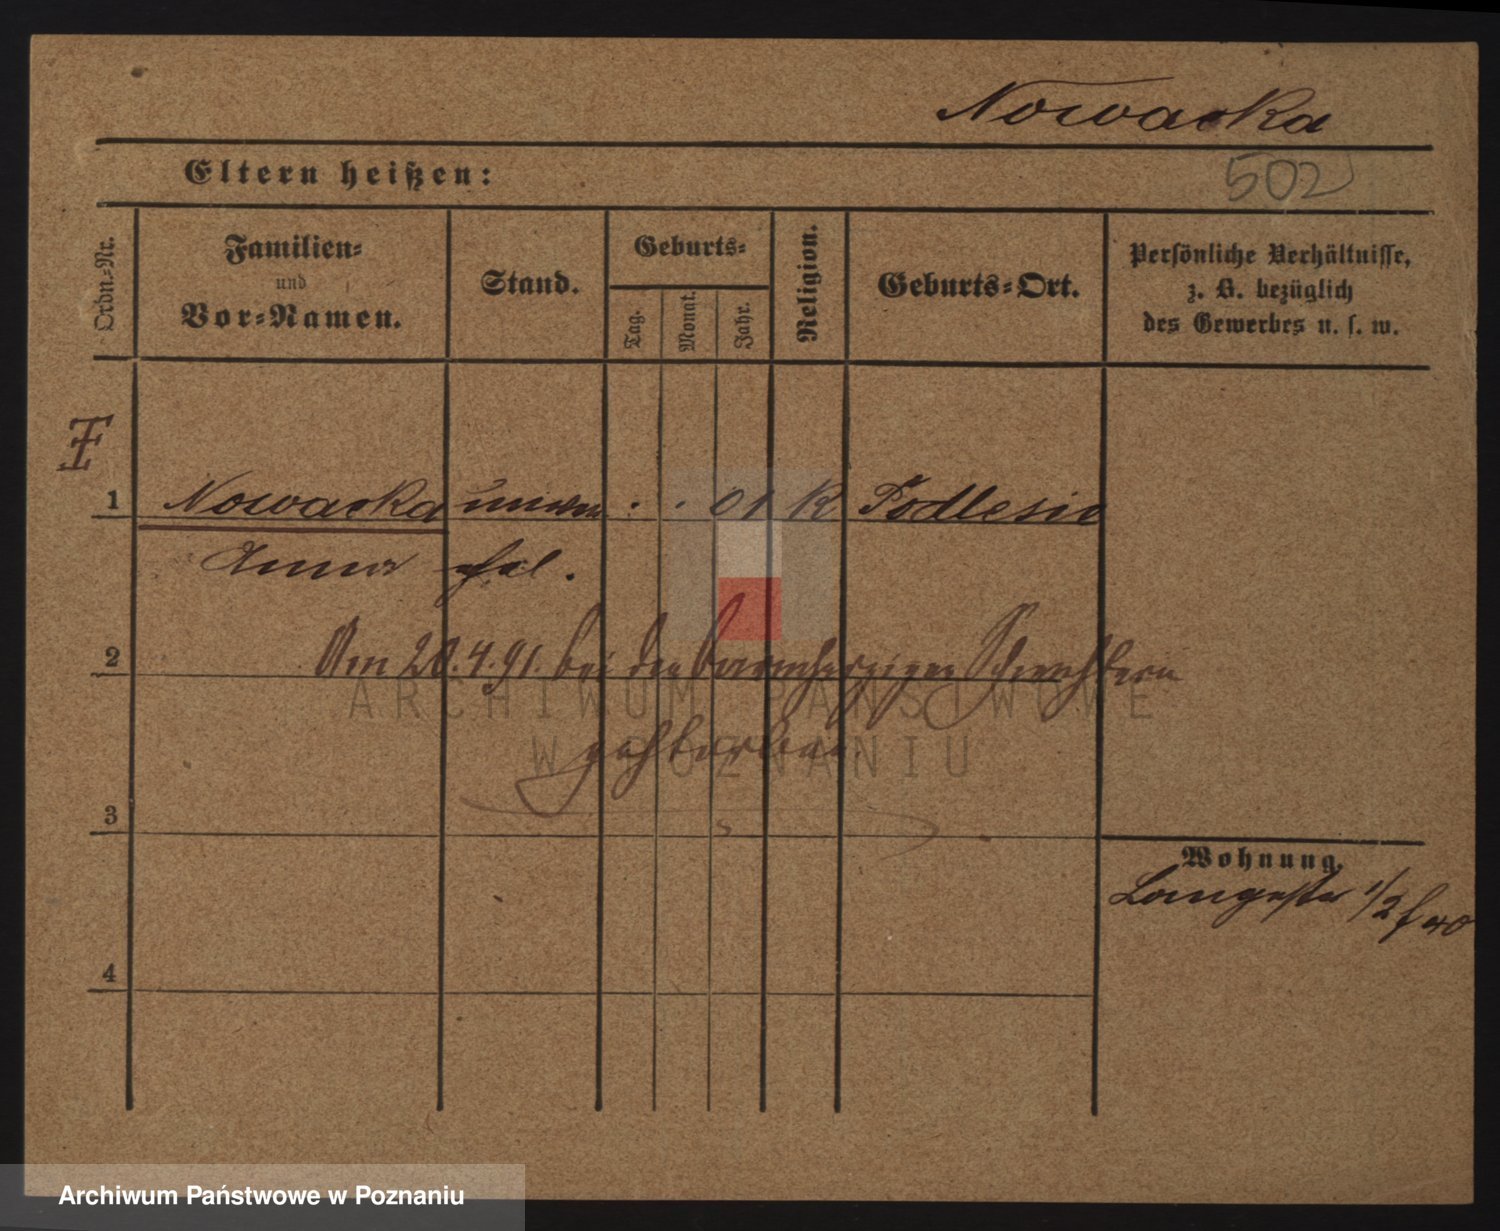 Nowacka
Eltern heißen:
502
Ordn.-Nr.
Familien-
und
Vor-Namen.
Stand.
Geburts-
Tag.
Monat.
Jahr.
Religion.
Geburts-Ort.
Persönliche Verhältnisse,
z. B. bezüglich
des Gewerbes u. s. w.
1 Nowacka unver . . 01 K Podlesie
Anna ehel.
2 Am 20.4.91. bei den barmherzigen Schwestern
gestorben.
ARCHIWUM PAŃSTWOWE
W POZNANIU
3
Wohnung.
Langestr 1/2
4
Archiwum Państwowe w Poznaniu